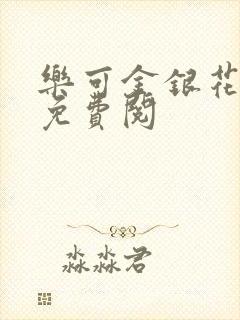 樂可金銀花
免費閱
淼淼君